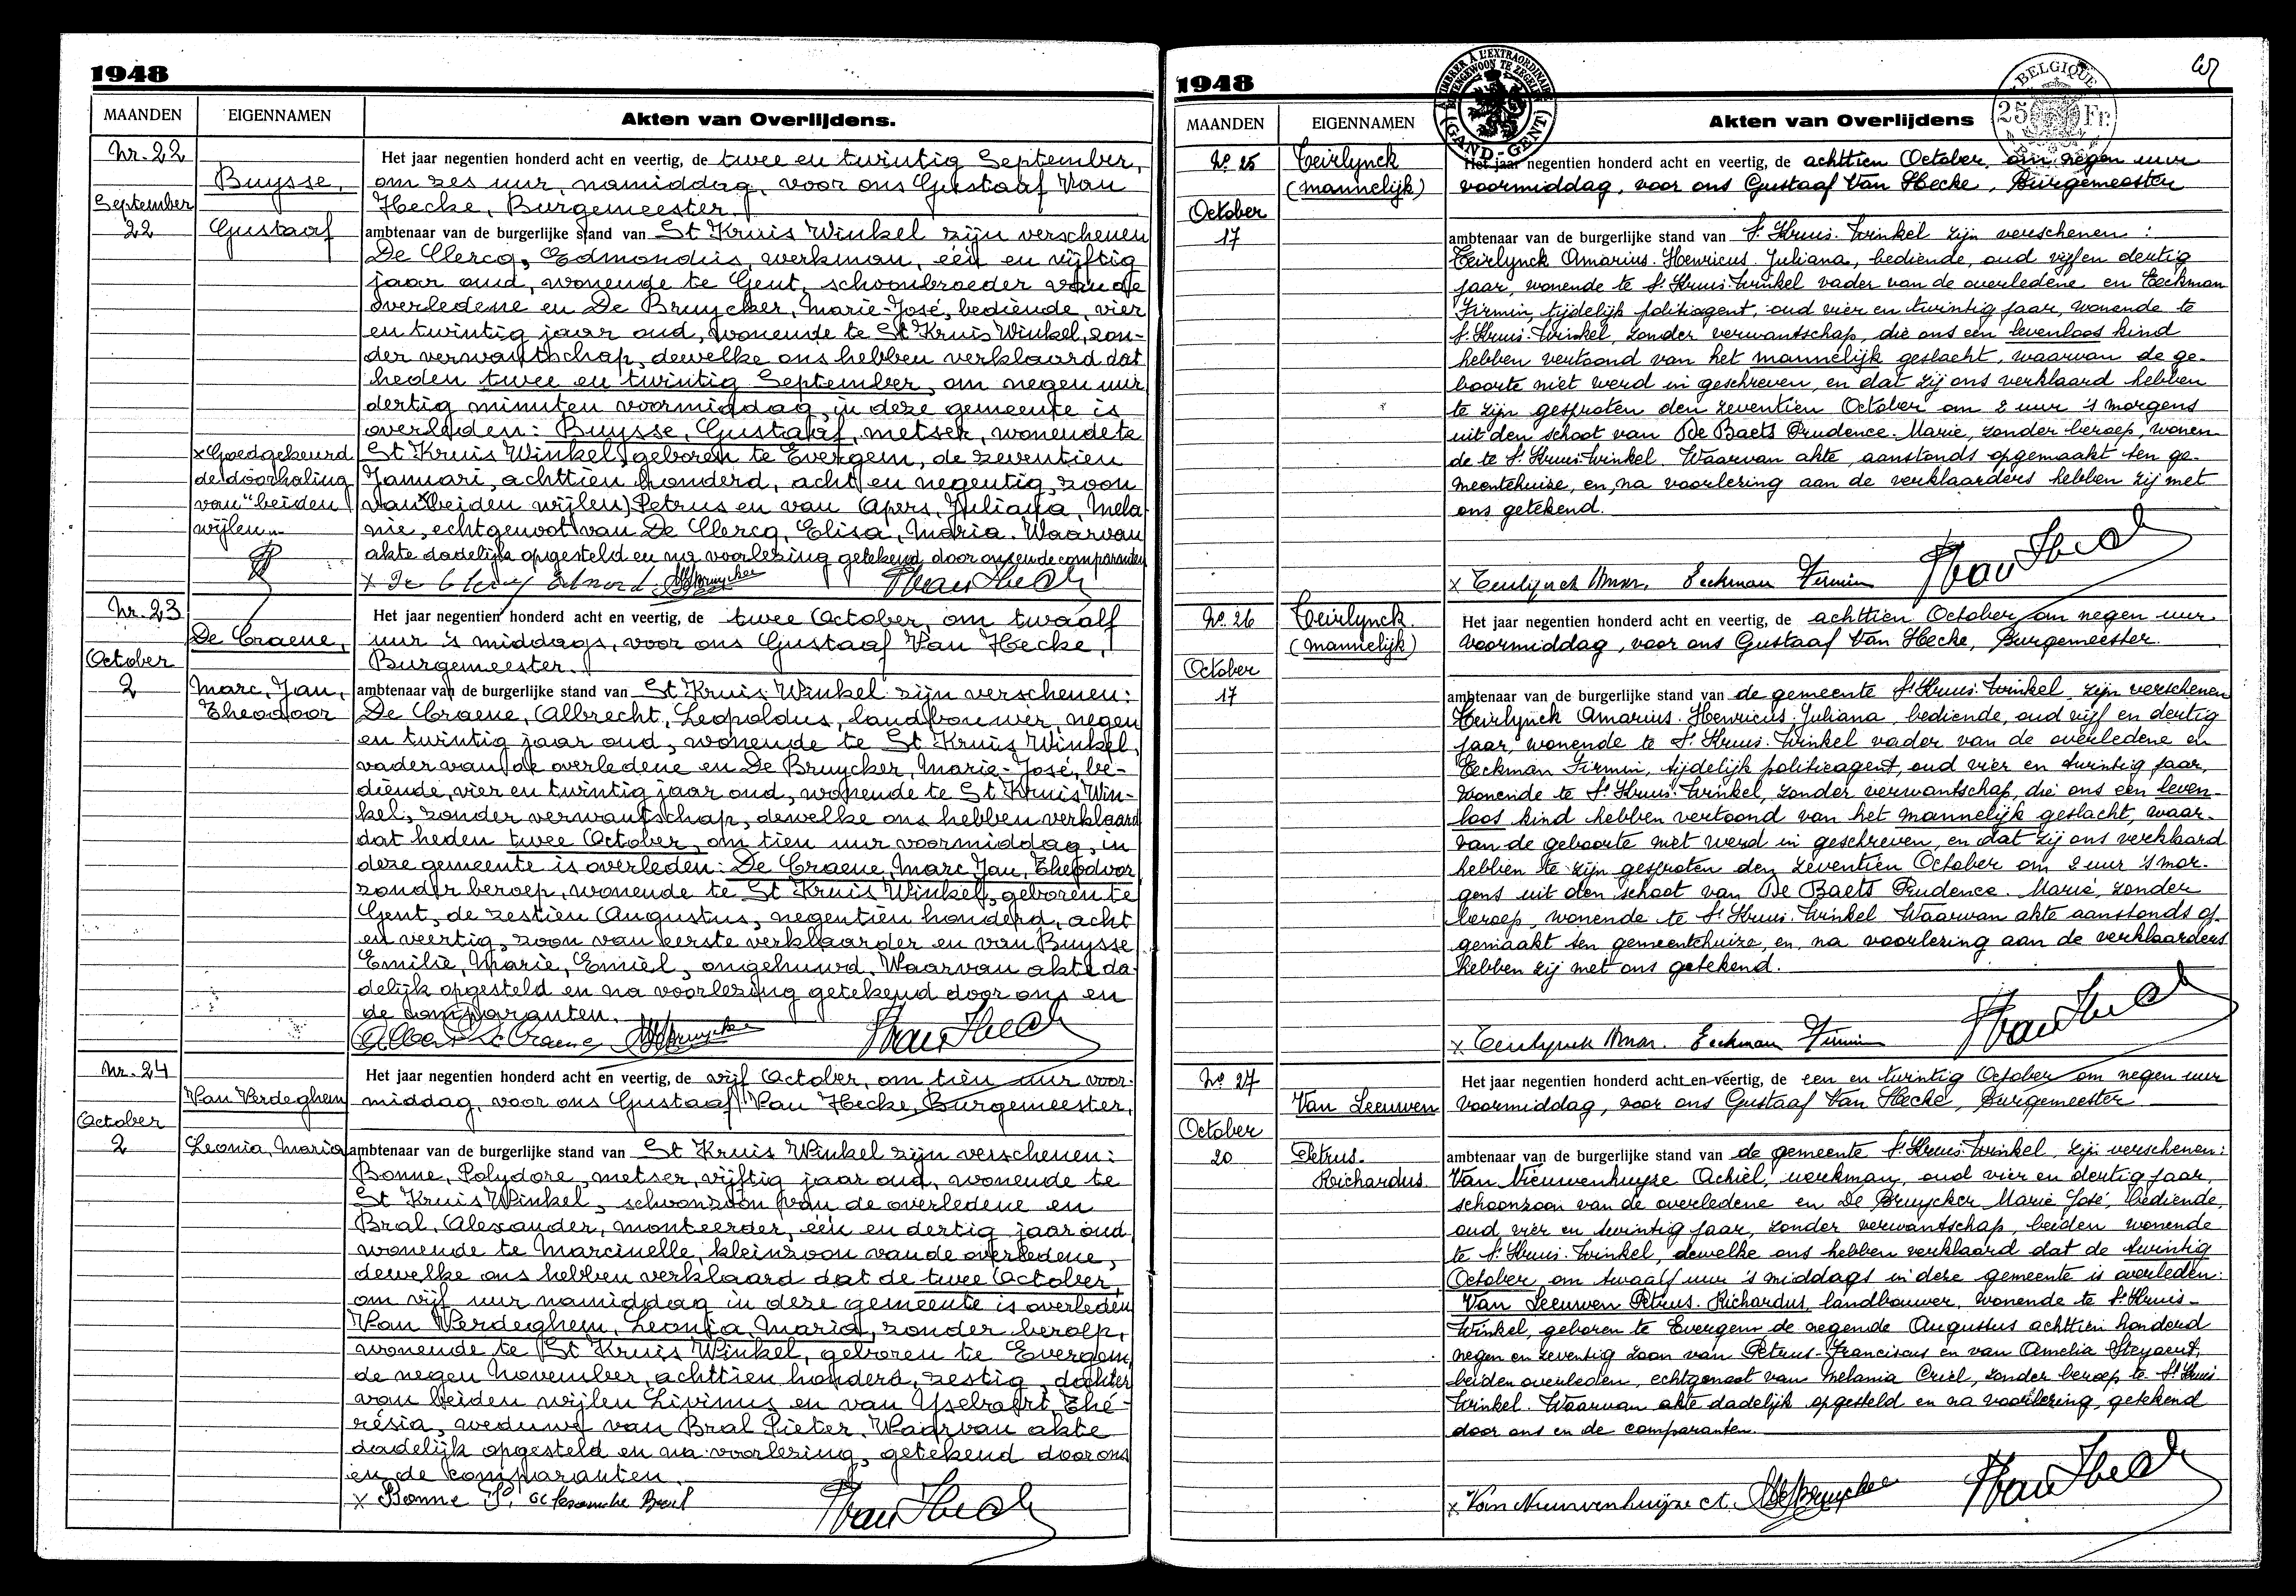 1948
MAANDEN EIGENNAMEN Akten van Overlijdens.
Nr. 22
Buysse,
September
22 Gustaaf
Het jaar negentien honderd acht en veertig, de twee en twintig September,
om zes uur, namiddag, voor ons Gustaaf Van
Hecke, Burgemeester
ambtenaar van de burgerlijke stand van St Kruis Winkel zijn verschenen
De Clercq, Edmondus, werkman, één en vijftig
jaar oud, wonende te Gent, schoonbroeder van de
overledene en De Bruycker, Marie-José, bediende, vier
en twintig jaar oud, wonende te St Kruis Winkel, zon-
der verwantschap, dewelke ons hebben verklaard dat
heden twee en twintig September, om negen uur
dertig minuten voormiddag, in deze gemeente is
overleden: Buysse, Gustaaf, metser, wonende te
St Kruis Winkel, geboren te Evergem, de zeventien
Januari, achttien honderd, acht en negentig, zoon
van (beiden wijlen) Petrus en van Apers, Juliana, Mela
nie, echtgenoot van De Clercq, Elisa, Maria. Waarvan
akte dadelijk opgesteld en na voorlezing getekend door ons en de comparanten
x Goedgekeurd
de doorhaling
van "beiden
wijlen"
x De Clercq Edmond. MDeBruycker GVan Hecke
Nr. 23
De Craene,
October
2 Marc, Jan,
Theodoor
Het jaar negentien honderd acht en veertig, de twee October, om twaalf
uur 's middags, voor ons Gustaaf Van Hecke,
Burgemeester.
ambtenaar van de burgerlijke stand van St Kruis Winkel zijn verschenen:
De Craene, Albrecht, Leopoldus, landbouwer, negen
en twintig jaar oud, wonende te St Kruis Winkel,
vader van de overledene en De Bruycker, Marie-José, be-
diende, vier en twintig jaar oud, wonende te St Kruis Win-
kel, zonder verwantschap, dewelke ons hebben verklaard
dat heden twee October, om tien uur voormiddag, in
deze gemeente is overleden: De Craene, Marc, Jan, Theodoor
zonder beroep, wonende te St Kruis Winkel, geboren te
Gent, de zestien Augustus, negentien honderd, acht
en veertig, zoon van eerste verklaarder en van Buysse
Emilie, Marie, Emiel, ongehuwd. Waarvan akte da-
delijk opgesteld en na voorlezing getekend door ons en
de comparanten.
Albert De Craene MDeBruycker GVan Hecke
Nr. 24
Van Verdeghem
October
2 Leonia, Maria
Het jaar negentien honderd acht en veertig, de vijf October, om tien uur voor-
middag, voor ons Gustaaf Van Hecke, Burgemeester,
ambtenaar van de burgerlijke stand van St Kruis Winkel zijn verschenen:
Bonne, Polydore, metser, vijftig jaar oud, wonende te
St Kruis Winkel, schoonzoon van de overledene en
Bral, Alexander, monteerder, één en dertig jaar oud
wonende te Marcinelle, kleinzoon van de overledene,
dewelke ons hebben verklaard dat de twee October,
om vijf uur namiddag in deze gemeente is overleden
Van Verdeghem, Leonia, Maria, zonder beroep,
wonende te St Kruis Winkel, geboren te Evergem,
de negen November, achttien honderd, zestig, dochter
van beiden wijlen Livinus en van Yselbaert, Thé-
résia, weduwe van Bral Pieter. Waarvan akte
dadelijk opgesteld en na voorlezing, getekend door ons
en de comparanten.
x Bonne P. Alexander Bral GVan Hecke
1948
A TIMBRER A L'EXTRAORDINAIRE
BUITENGEWOON TE ZEGELEN
(GAND-GENT)
BELGIQUE
25 Fr.
MAANDEN EIGENNAMEN Akten van Overlijdens
No. 25 Teirlynck
(mannelijk)
October
17
Het jaar negentien honderd acht en veertig, de achttien October, om negen uur
voormiddag, voor ons Gustaaf Van Hecke, Burgemeester
ambtenaar van de burgerlijke stand van St Kruis-Winkel zijn verschenen:
Teirlynck Amarius-Henricus-Juliana, bediende, oud vijf en dertig
jaar, wonende te St Kruis-Winkel vader van de overledene en Eeckman
Firmin, tijdelijk politieagent, oud vier en twintig jaar, wonende te
St Kruis-Winkel, zonder verwantschap, die ons een levenloos kind
hebben vertoond van het mannelijk geslacht, waarvan de ge-
boorte niet werd in geschreven, en dat zij ons verklaard hebben
te zijn gesproten den zeventien October om 2 uur 's morgens
uit den schoot van De Baets Prudence-Marie, zonder beroep, wonen-
de te St Kruis-Winkel. Waarvan akte, aanstonds opgemaakt ten ge-
meentehuize, en, na voorlezing aan de verklaarders hebben zij met
ons getekend.
x Teirlynck Amar. Eeckman Firmin GVan Hecke
No. 26 Teirlynck.
(mannelijk)
October
17
Het jaar negentien honderd acht en veertig, de achttien October om negen uur
voormiddag, voor ons Gustaaf Van Hecke, Burgemeester.
ambtenaar van de burgerlijke stand van de gemeente St Kruis-Winkel, zijn verschenen
Teirlynck Amarius-Henricus-Juliana, bediende, oud vijf en dertig
jaar, wonende te St Kruis-Winkel vader van de overledene en
Eeckman Firmin, tijdelijk politieagent, oud vier en twintig jaar,
wonende te St Kruis-Winkel, zonder verwantschap, die ons een leven-
loos kind hebben vertoond van het mannelijk geslacht, waar-
van de geboorte niet werd in geschreven, en dat zij ons verklaard
hebben te zijn gesproten den zeventien October om 2 uur 's mor-
gens uit den schoot van De Baets Prudence-Marie, zonder
beroep, wonende te St Kruis-Winkel Waarvan akte aanstonds op-
gemaakt ten gemeentehuize, en, na voorlezing aan de verklaarders
hebben zij met ons getekend.
x Teirlynck Amar. Eeckman Firmin GVan Hecke
No. 27
Van Leeuwen
October
20 Petrus-
Richardus
Het jaar negentien honderd acht en veertig, de een en twintig October om negen uur
voormiddag, voor ons Gustaaf Van Hecke, Burgemeester
ambtenaar van de burgerlijke stand van de gemeente St Kruis-Winkel, zijn verschenen:
Van Nieuwenhuyse Achiel, werkman, oud vier en dertig jaar,
schoonzoon van de overledene en De Bruycker Marie José, bediende,
oud vier en twintig jaar, zonder verwantschap, beiden wonende
te St Kruis-Winkel, dewelke ons hebben verklaard dat de twintig
October om twaalf uur 's middags in deze gemeente is overleden:
Van Leeuwen Petrus-Richardus, landbouwer, wonende te St Kruis-
Winkel, geboren te Evergem de negende Augustus achttien honderd
negen en zeventig zoon van Petrus-Franciscus en van Amelia Steyaert,
beiden overleden, echtgenoot van Melania Criel, zonder beroep te St Kruis
Winkel. Waarvan akte dadelijk opgesteld en na voorlezing, getekend
door ons en de comparanten.
x Van Nieuwenhuijse A. MDeBruycker GVan Hecke